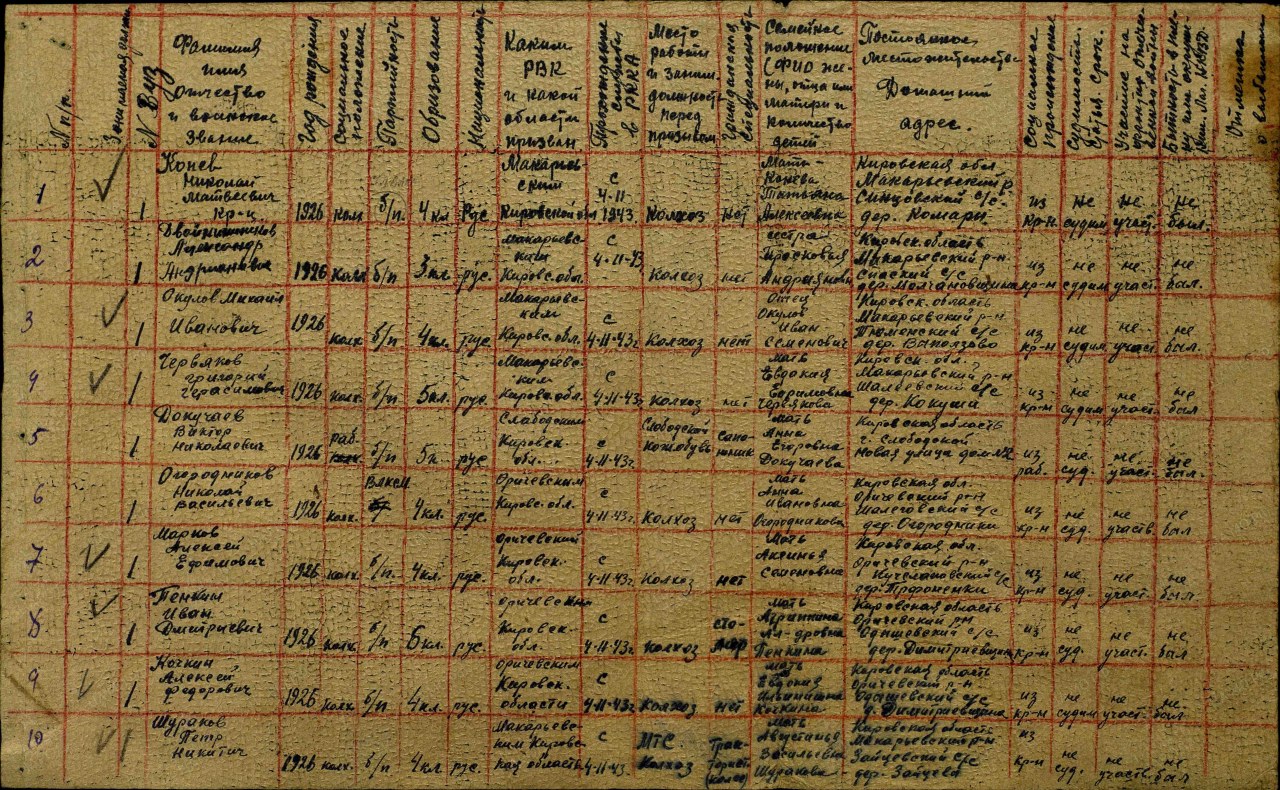 № п/п.
№ ВУЗ
Фамилия
имя
Отчество
и воинское
звание
Год рождения
Социальное
положение
Партийность
Образование
Национальность
Каким
РВК
и какой
области
призван
Прохождение
службы
в РККА
Место
работы
и заним.
должность
перед
призывом
Гражданская
специальность
Семейное
положение
(ФИО же-
ны, отца или
матери и
количество
детей
Постоянное
местожительство
Домашний
адрес.
Социальное
происхождение
Судимость.
Статья срок.
Участие на
Отметка
о выбытии
1
1
Конев
Николай
Матвеевич
Кр-ц
1926
колх
б/п.
4 кл
Рус.
Макарьев
ским
Кировской обл
с
4-11
1943.
Колхоз
нет
Мать-
Конева
Татьяна
Алексеевна
Кировская обл
Макарьевский р
Синцовский с/с-
дер. Комары
из
кр-н.
не
судим
не
участ.
не
был.
2
1
Двойнишников
Александр
Андрианович
1926
колх
б/п
3 кл
рус.
Макарьевс-
ким
Кировс. обл.
с
4-11-43
Колхоз
нет
сестра
Прасковья
Андрияновн
Кировск. область
Макарьевский р-н
Спаский с/с
дер. Молчановщина
из
кр-н
не
судим
не
участ.
не
был.
3
1
Окулов Михаил
Иванович
1926
колх
б/п
4 кл.
рус.
Макарьевс-
ким
Кировс. обл.
с
4-11-43г
Колхоз
нет
Отец
Окулов
Иван
Семенович
Кировск. область
Макарьевский р-н
Тюменский с/с
из
кр-н
не
судим
не
участ
не
был.
4
1
Червяков
Григорий
Герасимович
1926
колх
б/п
5 кл.
рус.
Макарьевс-
ким
Кировс. обл.
с
4-11-43г
Колхоз
нет
мать
Евдокия
Ефимовна
Червякова
Кировск. обл.
Макарьевский р-н
дер. Кокуша
из
кр-н
не
судим
не
участ.
не
был
5
1
Докучаев
Виктор
Николаевич
1926
раб.
б/п
5 к.
рус.
Слободским
Кировск-
обл.
с
4-11-43г.
Слободской
кожобувь
сапо-
жник
мать
Анна
Егоровна
Докучаева
Кировская область
г. Слободской
Новая улица дом №2
из
раб.
не
суд.
не
участ.
не
был.
6
1
Огородников
Николай
Васильевич
1926
колх.
ВЛКСМ
4 кл.
рус.
Оричевским
Кировс. обл.
с
4-11-43г.
Колхоз
нет
мать
Анна
Ивановна
Огородникова
Кировская обл.
Оричевский р-н
Шалеговский с/с
дер. Огородники
из
кр-н
не
суд.
не
участв.
не
был
7
1
Марков
Алексей
Ефимович
1926
колх.
б/п.
4 кл.
рус.
Оричевский
Кировск-
обл.
с
4-11-43г
Колхоз
нет
мать
Аксинья
Семеновна
Кировская обл.
Оричевский р-н
из
кр-н
не
суд.
не
участ.
не
был
8
1
Пенкин
Иван
Дмитриевич
1926
колх.
б/п
6 кл.
рус.
Оричевским
Кировск-
обл.
с
4-11-43г.
Колхоз
сто-
ляр
мать
Агриппина
Ал-дровна
Пенкина
Кировская область
Оричевский р-н
дер. Димитриевщина
из
кр-н
не
суд.
не
участ.
не
был
9
1
Кочкин
Алексей
Федорович
1926
колх.
б/п
4 кл.
рус.
Оричевским
Кировск.
области
с
4-11-43г.
Колхоз
нет
мать
Евдокия
Ильинишна
Кочкина
Кировская область
Оричевский р-н
д. Димитриевщина
из
кр-н
не
судим
не
участ.
не
был
10
1
Шураков
Петр
Никитич
1926
колх.
б/п
4 кл
рус.
Макарьевс-
ким Кировс-
кая область
с
4-11-43.
МТС.
Колхоз
Трак-
торист
мать
Августинья
Васильевна
Шуракова
Кировская область
Макарьевский р-н
Зайцевский с/с
дер. Зайцева
из
кр-н
не
суд.
не
участв
не
был